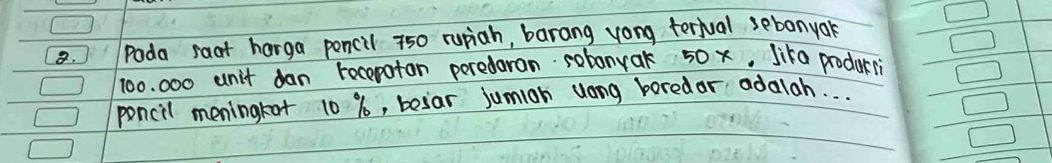 2. Pada saat harga pencil 750 rupiah, barang yang terjual sebanyak
100.000 unit dan kecepatan peredaran sebanyak 50 x, jika produksi
pencil meningkat 10 %, besar jumlah uang beredar adalah...